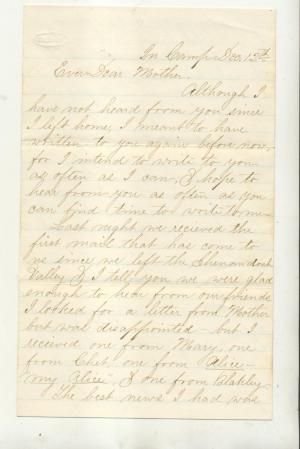 In Camp Dec. 12th
Ever Dear Mother.
Although I
have not heard from you since
I left home, I meant to have
written to you again before now,
for I intend to write to you
as often as I can, & hope to
hear from you as often as you
can find time to write to me.
Last night we recieved the
first mail that has come to
us since we left the Shenandoah
Valley & I tell you we were glad
enough to hear from our friends
I looked for a letter from Mother
but was disappointed - but I
received one from Mary, one
from Chet, one from Alice -
"my Alice", & one from Blakley.
The best news I had was